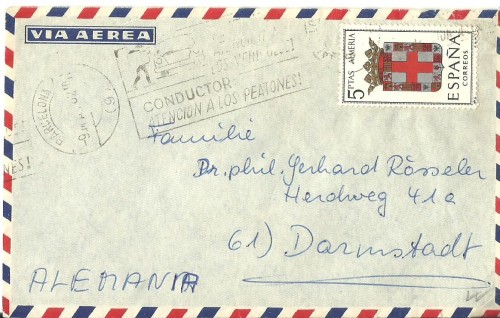 VIA AEREA
CONDUCTOR
ATENCION A LOS PEATONES!
BARCELONA
(6)
NES!
5 PTAS ALMERIA
ESPAÑA
CORREOS
Familie
Dr. phil. Gerhard Rösseler
Herdweg 41a
61) Darmstadt
ALEMANIA